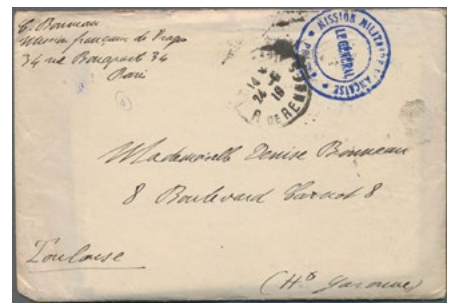 E. Bonneau
Mission française de Prague
34 rue Bonaparte 34
Paris
MISSION MILITAIRE FRANÇAISE
LE GÉNÉRAL
14
24 - 6
19
R. DE RENNES
Mademoiselle Denise Bonneau
8 Boulevard Carnot 8
Toulouse
(Hte Garonne)